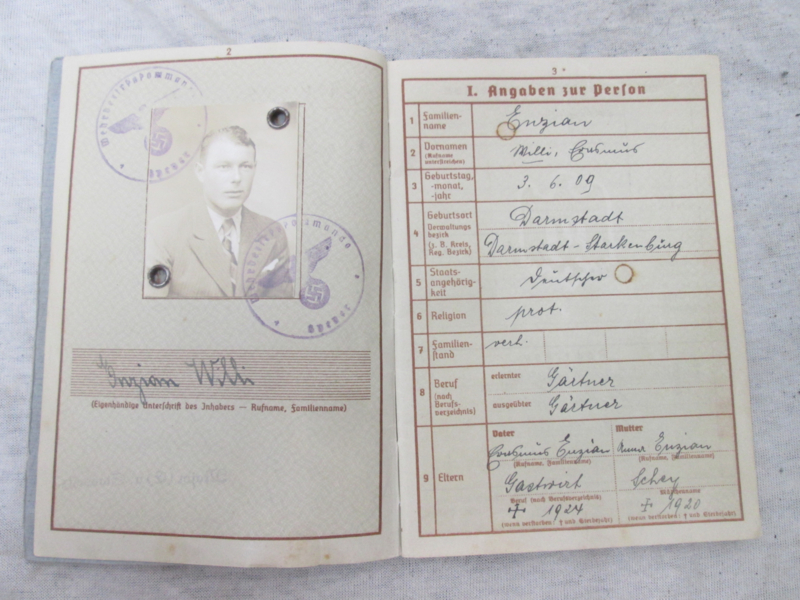 2
Wehrbezirkskommando
Speyer
Wehrbezirkskommando
Speyer
Enzian Willi
(Eigenhändige Unterschrift des Inhabers — Rufname, Familienname)
3
I. Angaben zur Person
1 Familien-
name
Enzian
2 Vornamen
(Rufname
unterstreichen)
Willi, Erasmus
3 Geburtstag,
-monat,
-jahr
3. 6. 09
4 Geburtsort
Verwaltungs-
bezirk
(z. B. Kreis,
Reg. Bezirk)
Darmstadt
Darmstadt - Starkenburg
5 Staats-
angehörig-
keit
Deutscher
6 Religion
prot.
7 Familien-
stand
verh.
8 Beruf
(nach
Berufs-
verzeichnis)
erlernter Gärtner
ausgeübter Gärtner
9 Eltern
Vater
Erasmus Enzian
(Rufname, Familienname)
Gastwirt
Beruf (nach Berufsverzeichnis)
† 1924
(wenn verstorben: † und Sterbejahr)
Mutter
Anna Enzian
(Rufname, Familienname)
Schey
Mädchenname
† 1920
(wenn verstorben: † und Sterbejahr)